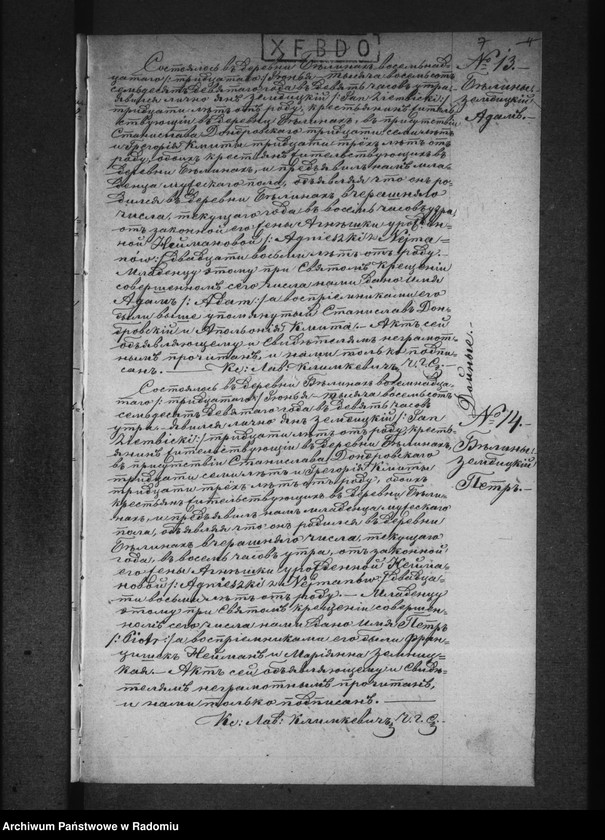 XFBDO
7
№ 13.
Бѣлины
Земблицкій
Адамъ.
Состоялось въ деревни Бѣлинахъ восемьнад-
цатаго /: тридцатаго :/ Іюня тысяча восемьсотъ
семьдесятъ девятаго года въ девять часовъ утра
явился лично Янъ /: Jan
тридцати лѣтъ отъ роду, крестьянинъ житель-
ствующій въ деревни Бѣлинахъ, въ присутствіи
Станислава Домбровскаго тридцати семи лѣтъ
и Грегорія Кмиты тридцати трехъ лѣтъ отъ
роду, обоихъ крестьянъ жительствующихъ въ
деревни Бѣлинахъ, и предъявилъ намъ мла-
денца мужескаго пола, объявляя что онъ ро-
дился въ деревни Бѣлинахъ вчерашняго
числа, текущаго года въ восемь часовъ утра,
отъ законной его жены Агнѣшки урожден-
ной Неймановой /: Agnieszki z Nejma-
now :/ двадцати восьми лѣтъ отъ роду.
Младенцу этому при Святомъ Крещеніи
совершенномъ сего числа нами дано имя
Адамъ /: Adam :/ а воспріемниками его
были выше упомянутый Станиславъ Дом-
бровскій и Аполонія Кмита. Актъ сей
объявляющему и свидѣтелямъ неграмот-
нымъ прочитанъ, и нами только подпи-
санъ. Кс: Лав: Климкевичъ, Ч. Г. С.
Двойные.
№ 14.
Бѣлины
Петръ.
Состоялось въ деревни Бѣлинахъ восемнадца-
таго /: тридцатаго :/ Іюня тысяча восемьсотъ
семьдесятъ девятаго года въ девять часовъ
утра явился лично Янъ /: Jan
:/ тридцати лѣтъ отъ роду, кресть-
янинъ жительствующій въ деревни Бѣлинахъ,
въ присутствіи Станислава Домбровскаго
тридцати семи лѣтъ и Грегорія Кмиты
тридцати трехъ лѣтъ отъ роду, обоихъ
крестьянъ жительствующихъ въ деревни Бѣли-
нахъ, и предъявилъ намъ младенца мужескаго
пола, объявляя что онъ родился въ деревни
Бѣлинахъ вчерашняго числа, текущаго
года въ восемь часовъ утра, отъ законной
его жены Агнѣшки урожденной Нейма-
новой /: Agnieszki z Nejmanow :/ двадца-
ти восьми лѣтъ отъ роду. Младенцу
этому при Святомъ крещеніи совершен-
номъ сего числа нами дано имя Петръ
/: Piotr :/ а воспріемниками его были Фран-
цишекъ Нейманъ и Маріянна
Актъ сей объявляющему и свидѣ-
телямъ неграмотнымъ прочитанъ,
и нами только подписанъ.
Кс: Лав: Климкевичъ, Ч. Г. С.
Archiwum Państwowe w Radomiu